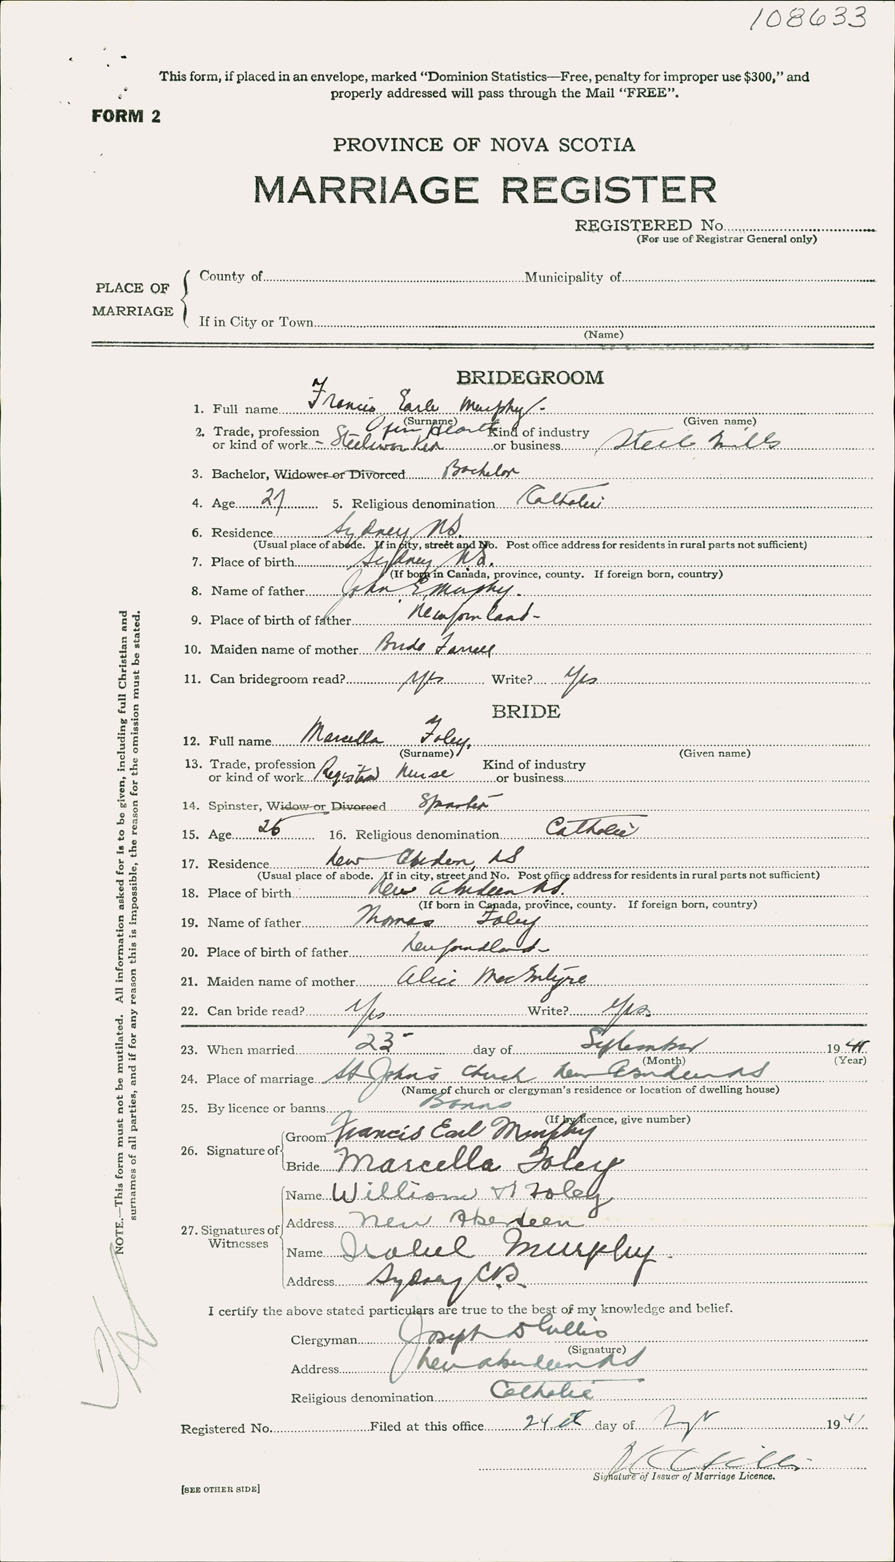 108633
This form, if placed in an envelope, marked “Dominion Statistics—Free, penalty for improper use $300,” and
properly addressed will pass through the Mail “FREE”.
FORM 2
PROVINCE OF NOVA SCOTIA
MARRIAGE REGISTER
REGISTERED No.
(For use of Registrar General only)
PLACE OF MARRIAGE
County of Municipality of
If in City or Town
(Name)
BRIDEGROOM
1. Full name Francis Earle Murphy
(Surname) (Given name)
2. Trade, profession Open Hearth Kind of industry
or kind of work Steelworker or business Steel Mills
3. Bachelor, Widower or Divorced Bachelor
4. Age 27 5. Religious denomination Catholic
6. Residence Sydney NS.
(Usual place of abode. If in city, street and No. Post office address for residents in rural parts not sufficient)
7. Place of birth Sydney NS.
(If born in Canada, province, county. If foreign born, country)
8. Name of father John E. Murphy.
9. Place of birth of father Newfoundland
10. Maiden name of mother Bride Farrell
11. Can bridegroom read? yes Write? yes
BRIDE
12. Full name Marcella Foley.
(Surname) (Given name)
13. Trade, profession Kind of industry
or kind of work Registered Nurse or business
14. Spinster, Widow or Divorced Spinster
15. Age 26 16. Religious denomination Catholic
17. Residence New Aberdeen, NS
(Usual place of abode. If in city, street and No. Post office address for residents in rural parts not sufficient)
18. Place of birth New Aberdeen NS.
(If born in Canada, province, county. If foreign born, country)
19. Name of father Thomas Foley
20. Place of birth of father Newfoundland
21. Maiden name of mother Alice MacIntyre
22. Can bride read? Yes Write? Yes.
23. When married 23 day of September 1941
(Month) (Year)
24. Place of marriage St John's Church New Aberdeen NS
(Name of church or clergyman's residence or location of dwelling house)
25. By licence or banns Banns
(If by licence, give number)
26. Signature of
Groom Francis Earl Murphy
Bride Marcella Foley
27. Signatures of Witnesses
Name William Foley
Address New Aberdeen
Name Isabel Murphy.
Address Sydney C.B.
I certify the above stated particulars are true to the best of my knowledge and belief.
Clergyman Joseph D
(Signature)
Address New Aberdeen NS
Religious denomination Catholic
Registered No. Filed at this office 24th day of Sept 1941
Signature of Issuer of Marriage Licence.
[SEE OTHER SIDE]
NOTE.—This form must not be mutilated. All information asked for is to be given, including full Christian and
surnames of all parties, and if for any reason this is impossible, the reason for the omission must be stated.